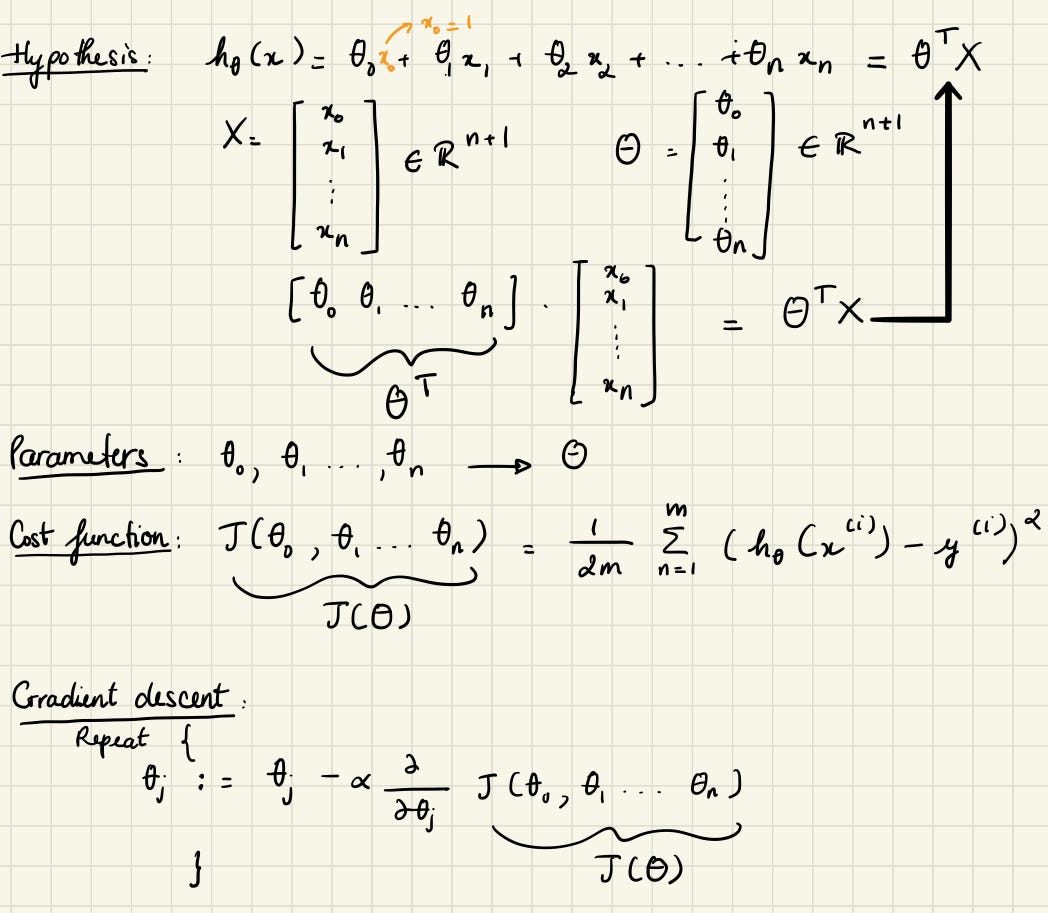 x₀ = 1
Hypothesis: h_θ(x) = θ₀x₀ + θ₁x₁ + θ₂x₂ + ... + θₙxₙ = θᵀX
X = [x₀ x₁ ⋮ xₙ] ∈ ℝⁿ⁺¹ Θ = [θ₀ θ₁ ⋮ θₙ] ∈ ℝⁿ⁺¹
[θ₀ θ₁ ... θₙ] · [x₀ x₁ ⋮ xₙ] = Θᵀ X
Θᵀ
Parameters: θ₀, θ₁ ..., θₙ → Θ
Cost function: J(θ₀, θ₁ ... θₙ) = 1/2m Σ_{n=1}^{m} (h_θ(x⁽ⁱ⁾) - y⁽ⁱ⁾)²
J(Θ)
Gradient descent:
Repeat {
θⱼ := θⱼ - α ∂/∂θⱼ J(θ₀, θ₁ ... θₙ)
J(Θ)
}